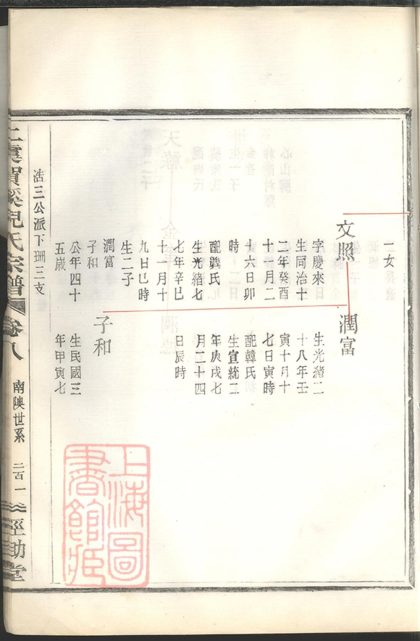 一女
文照
字慶來日
生同治十
二年癸酉
十一月二
十六日卯
時
配龔氏
生光緒七
七年辛巳
十一月十
九日巳時
生二子
潤富
子和
公年四十
五歲
潤富
生光緒二
十八年壬
寅十月十
七日寅時
配韓氏
生宣統二
年庚戌七
月二十四
日辰時
子和
生民國三
年甲寅七
浩三公派下珊三支
上虞賀溪倪氏宗譜
卷八
南陝世系
二百一
經助堂
上海圖
書館藏